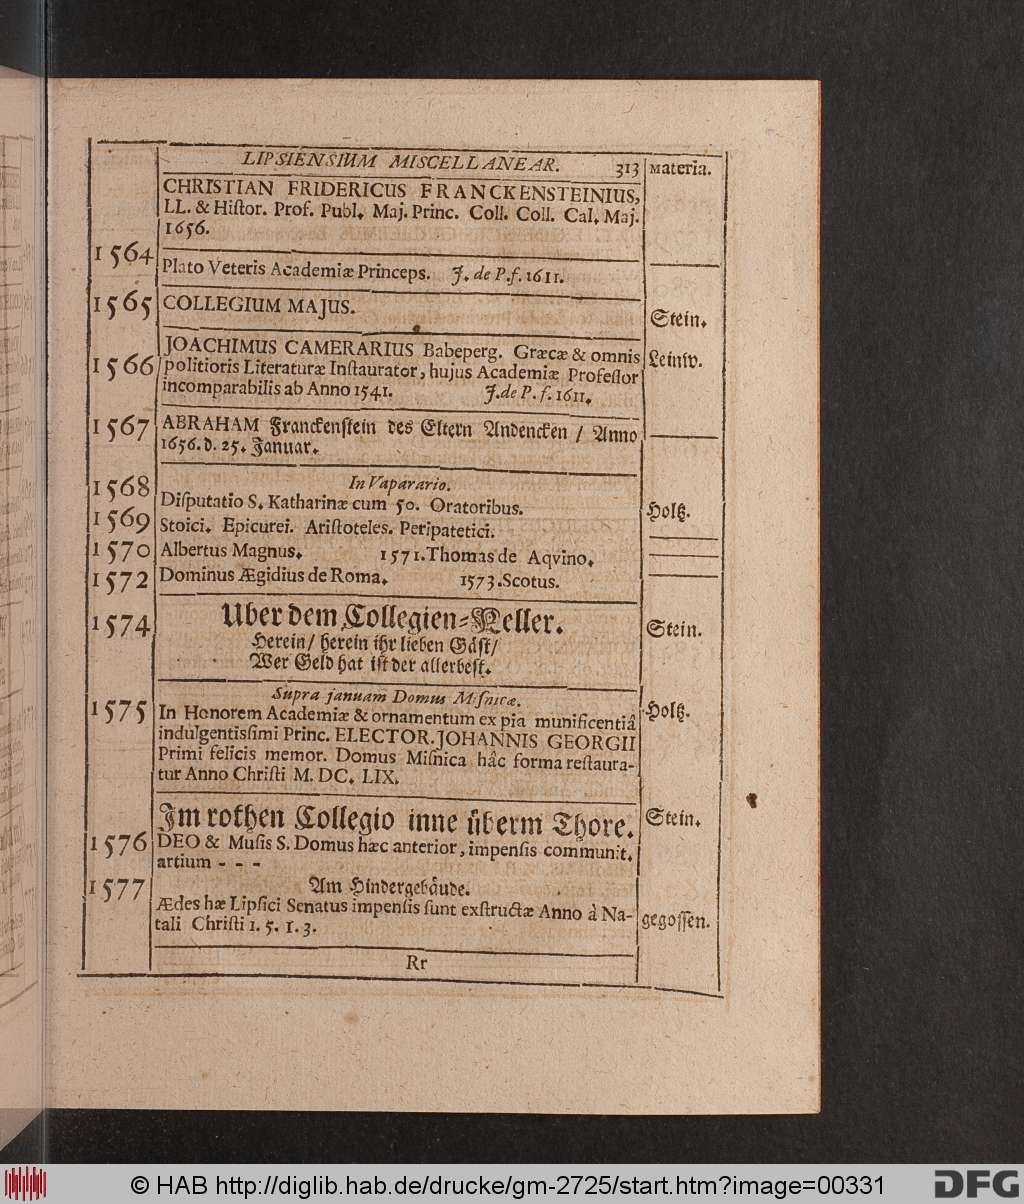 LIPSIENSIUM MISCELLANEAR. 313 Materia.
CHRISTIAN FRIDERICUS FRANCKENSTEINIUS,
LL. & Hiſtor. Prof. Publ. Maj. Princ. Coll. Coll. Cal. Maj.
1656.
1564 Plato Veteris Academiæ Princeps. J. de P. f. 1611.
1565 COLLEGIUM MAJUS. Stein.
1566 JOACHIMUS CAMERARIUS Babeperg. Græcæ & omnis Leinw.
politioris Literaturæ Inſtaurator, hujus Academiæ Profeſſor
incomparabilis ab Anno 1541. J. de P. f. 1611.
1567 ABRAHAM Franckenſtein des Eltern Andencken / Anno
1656. d. 25. Januar.
In Vaparario.
1568 Diſputatio S. Katharinæ cum 50. Oratoribus. Holtz.
1569 Stoici. Epicurei. Ariſtoteles. Peripatetici.
1570 Albertus Magnus. 1571. Thomas de Aqvino.
1572 Dominus Ægidius de Roma. 1573. Scotus.
1574 Uber dem Collegien-Keller. Stein.
Herein / herein ihr lieben Gäſt /
Wer Geld hat iſt der allerbeſt.
Supra januam Domus Miſnicæ.
1575 In Honorem Academiæ & ornamentum ex pia munificentiâ Holtz.
indulgentisſimi Princ. ELECTOR. JOHANNIS GEORGII
Primi felicis memor. Domus Miſnica hâc forma reſtaura-
tur Anno Chriſti M. DC. LIX.
Im rothen Collegio inne überm Thore. Stein.
1576 DEO & Muſis S. Domus hæc anterior, impenſis communit.
artium - - -
1577 Am Hindergebäude.
Ædes hæ Lipſici Senatus impenſis ſunt exſtructæ Anno à Na- gegoſſen.
tali Chriſti 1. 5. 1. 3.
Rr
© HAB http://diglib.hab.de/drucke/gm-2725/start.htm?image=00331
DFG